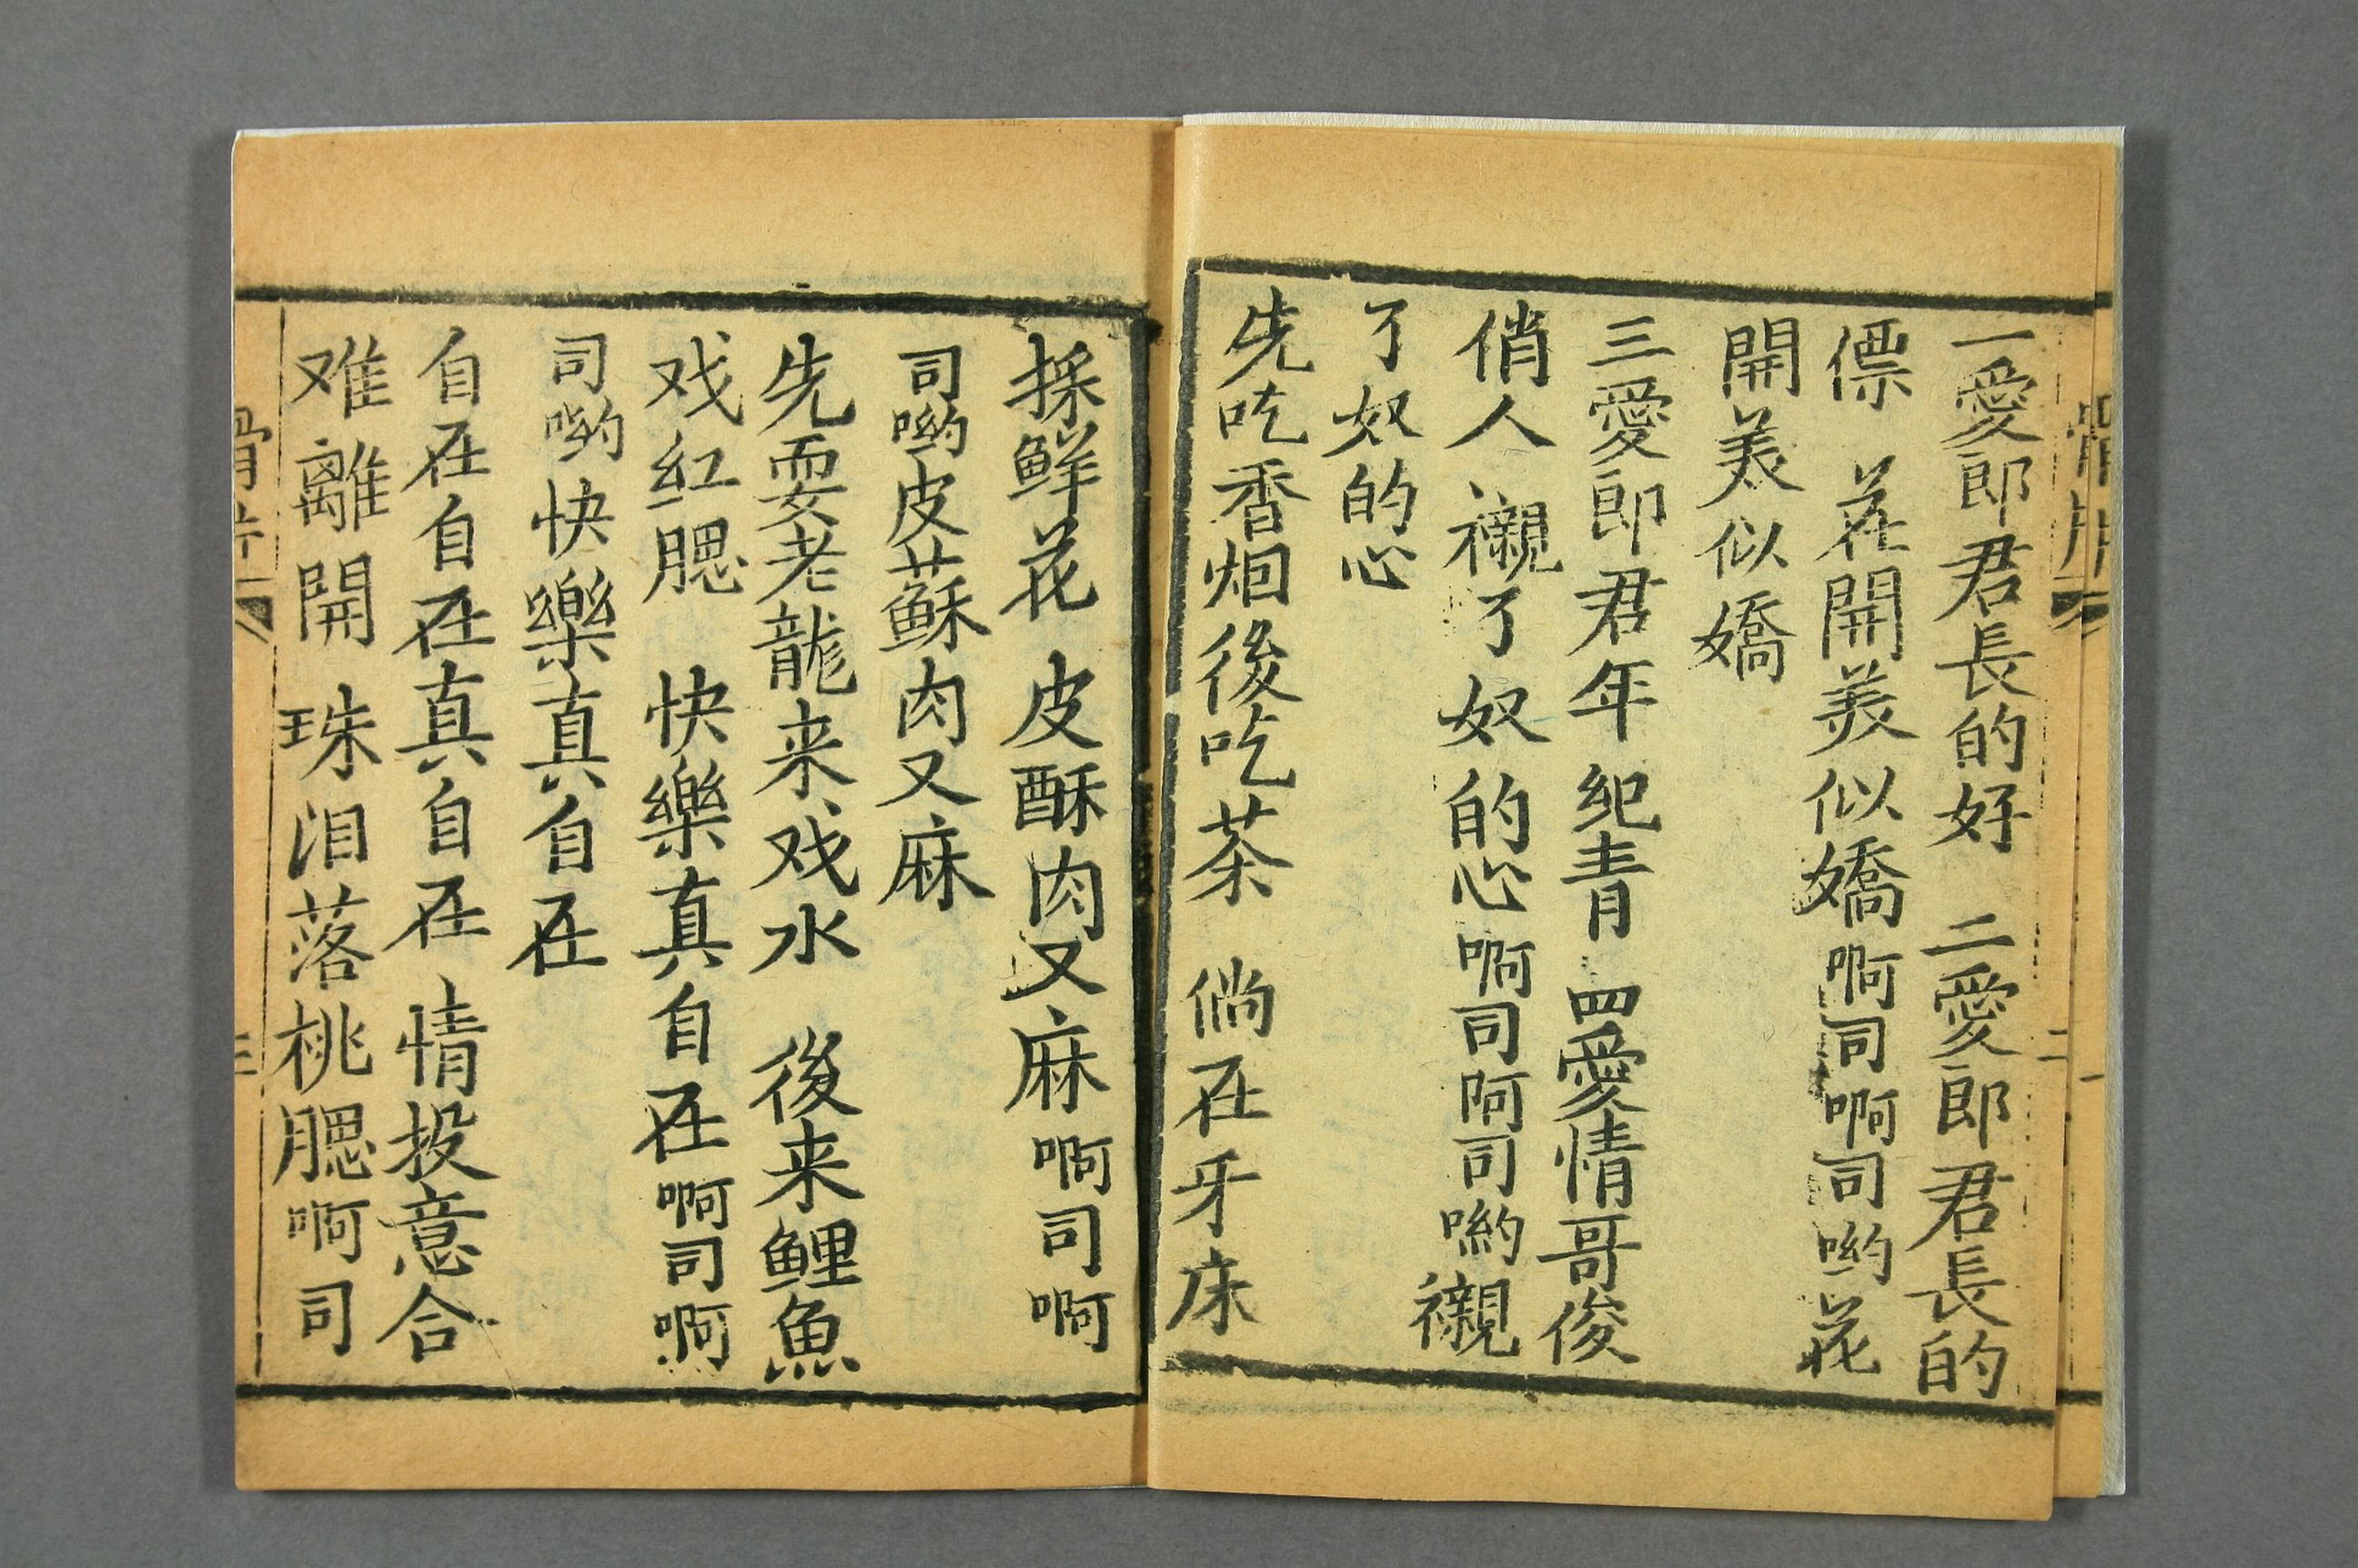 一愛郎君長的好　二愛郎君長的
僄　花開美似嬌啊司啊司喲花
開美似嬌
三愛郎君年紀青　四愛情哥俊
俏人　襯了奴的心啊司阿司喲襯
了奴的心
先吃香烟後吃茶　倘在牙床
採鲜花　皮酥肉又麻啊司啊
司喲皮蘇肉又麻
先耍老龍来戏水　後来鲤魚
戏红腮　快樂真自在啊司啊
司喲快樂真自在
自在自在真自在　情投意合
难離開　珠泪落桃腮啊司
三
二